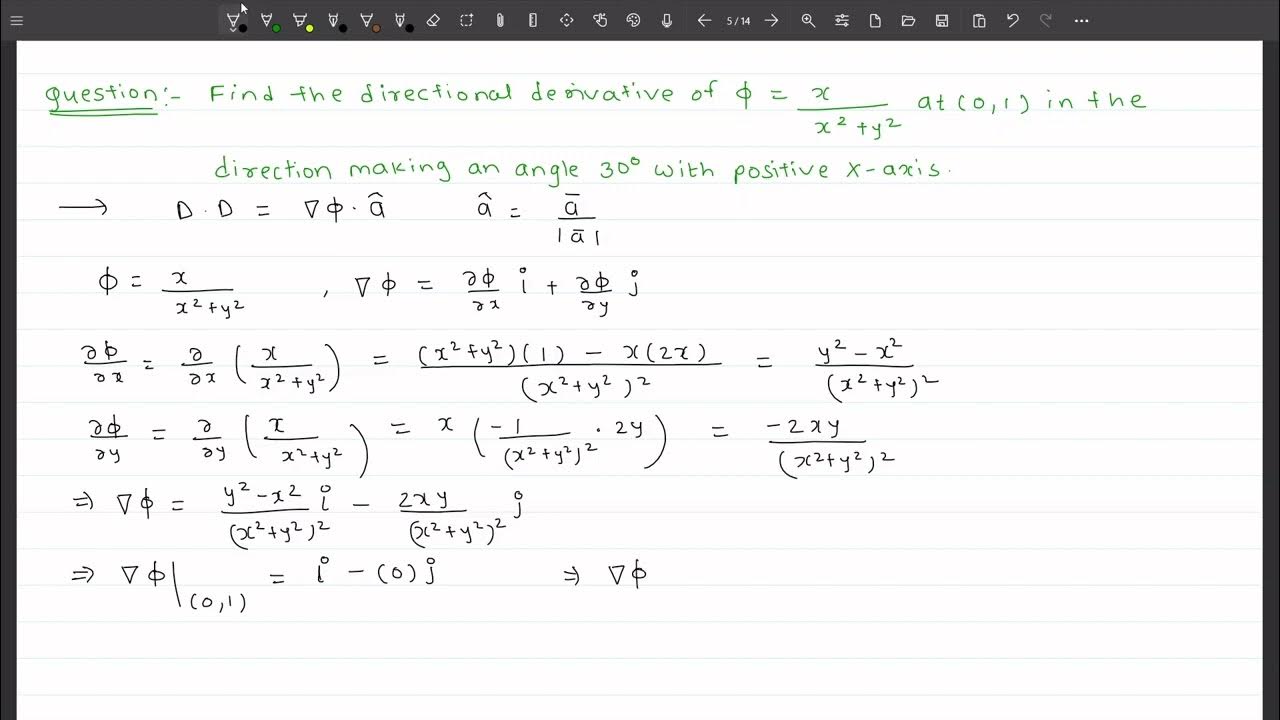 5/14
Question:- Find the directional derivative of ϕ = x/(x² + y²) at (0,1) in the
direction making an angle 30° with positive X-axis.
→ D.D = ∇ϕ · â    â = ā/|ā|
ϕ = x/(x²+y²) , ∇ϕ = ∂ϕ/∂x i + ∂ϕ/∂y j
∂ϕ/∂x = ∂/∂x (x/(x²+y²)) = ((x²+y²)(1) - x(2x))/(x²+y²)² = (y²-x²)/(x²+y²)²
∂ϕ/∂y = ∂/∂y (x/(x²+y²)) = x (-1/(x²+y²)² · 2y) = -2xy/(x²+y²)²
⇒ ∇ϕ = (y²-x²)/(x²+y²)² i - 2xy/(x²+y²)² j
⇒ ∇ϕ|(0,1) = i - (0)j    ⇒ ∇ϕ